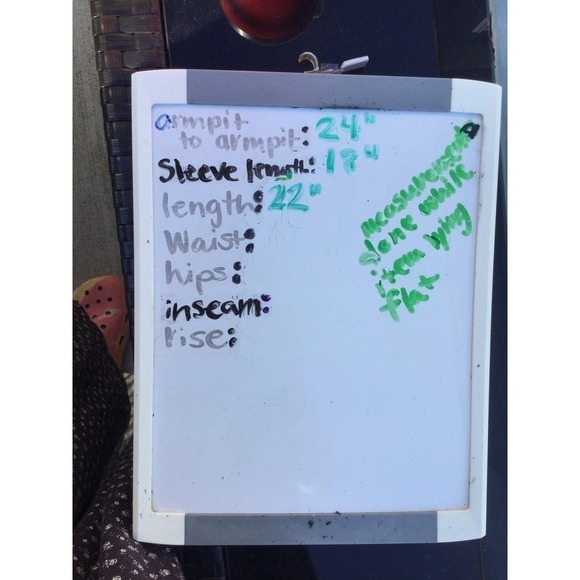 armpit
to armpit: 24"
Sleeve length: 18"
length: 22"
Waist:
hips:
inseam:
rise:
measurements
done while
item lying
flat